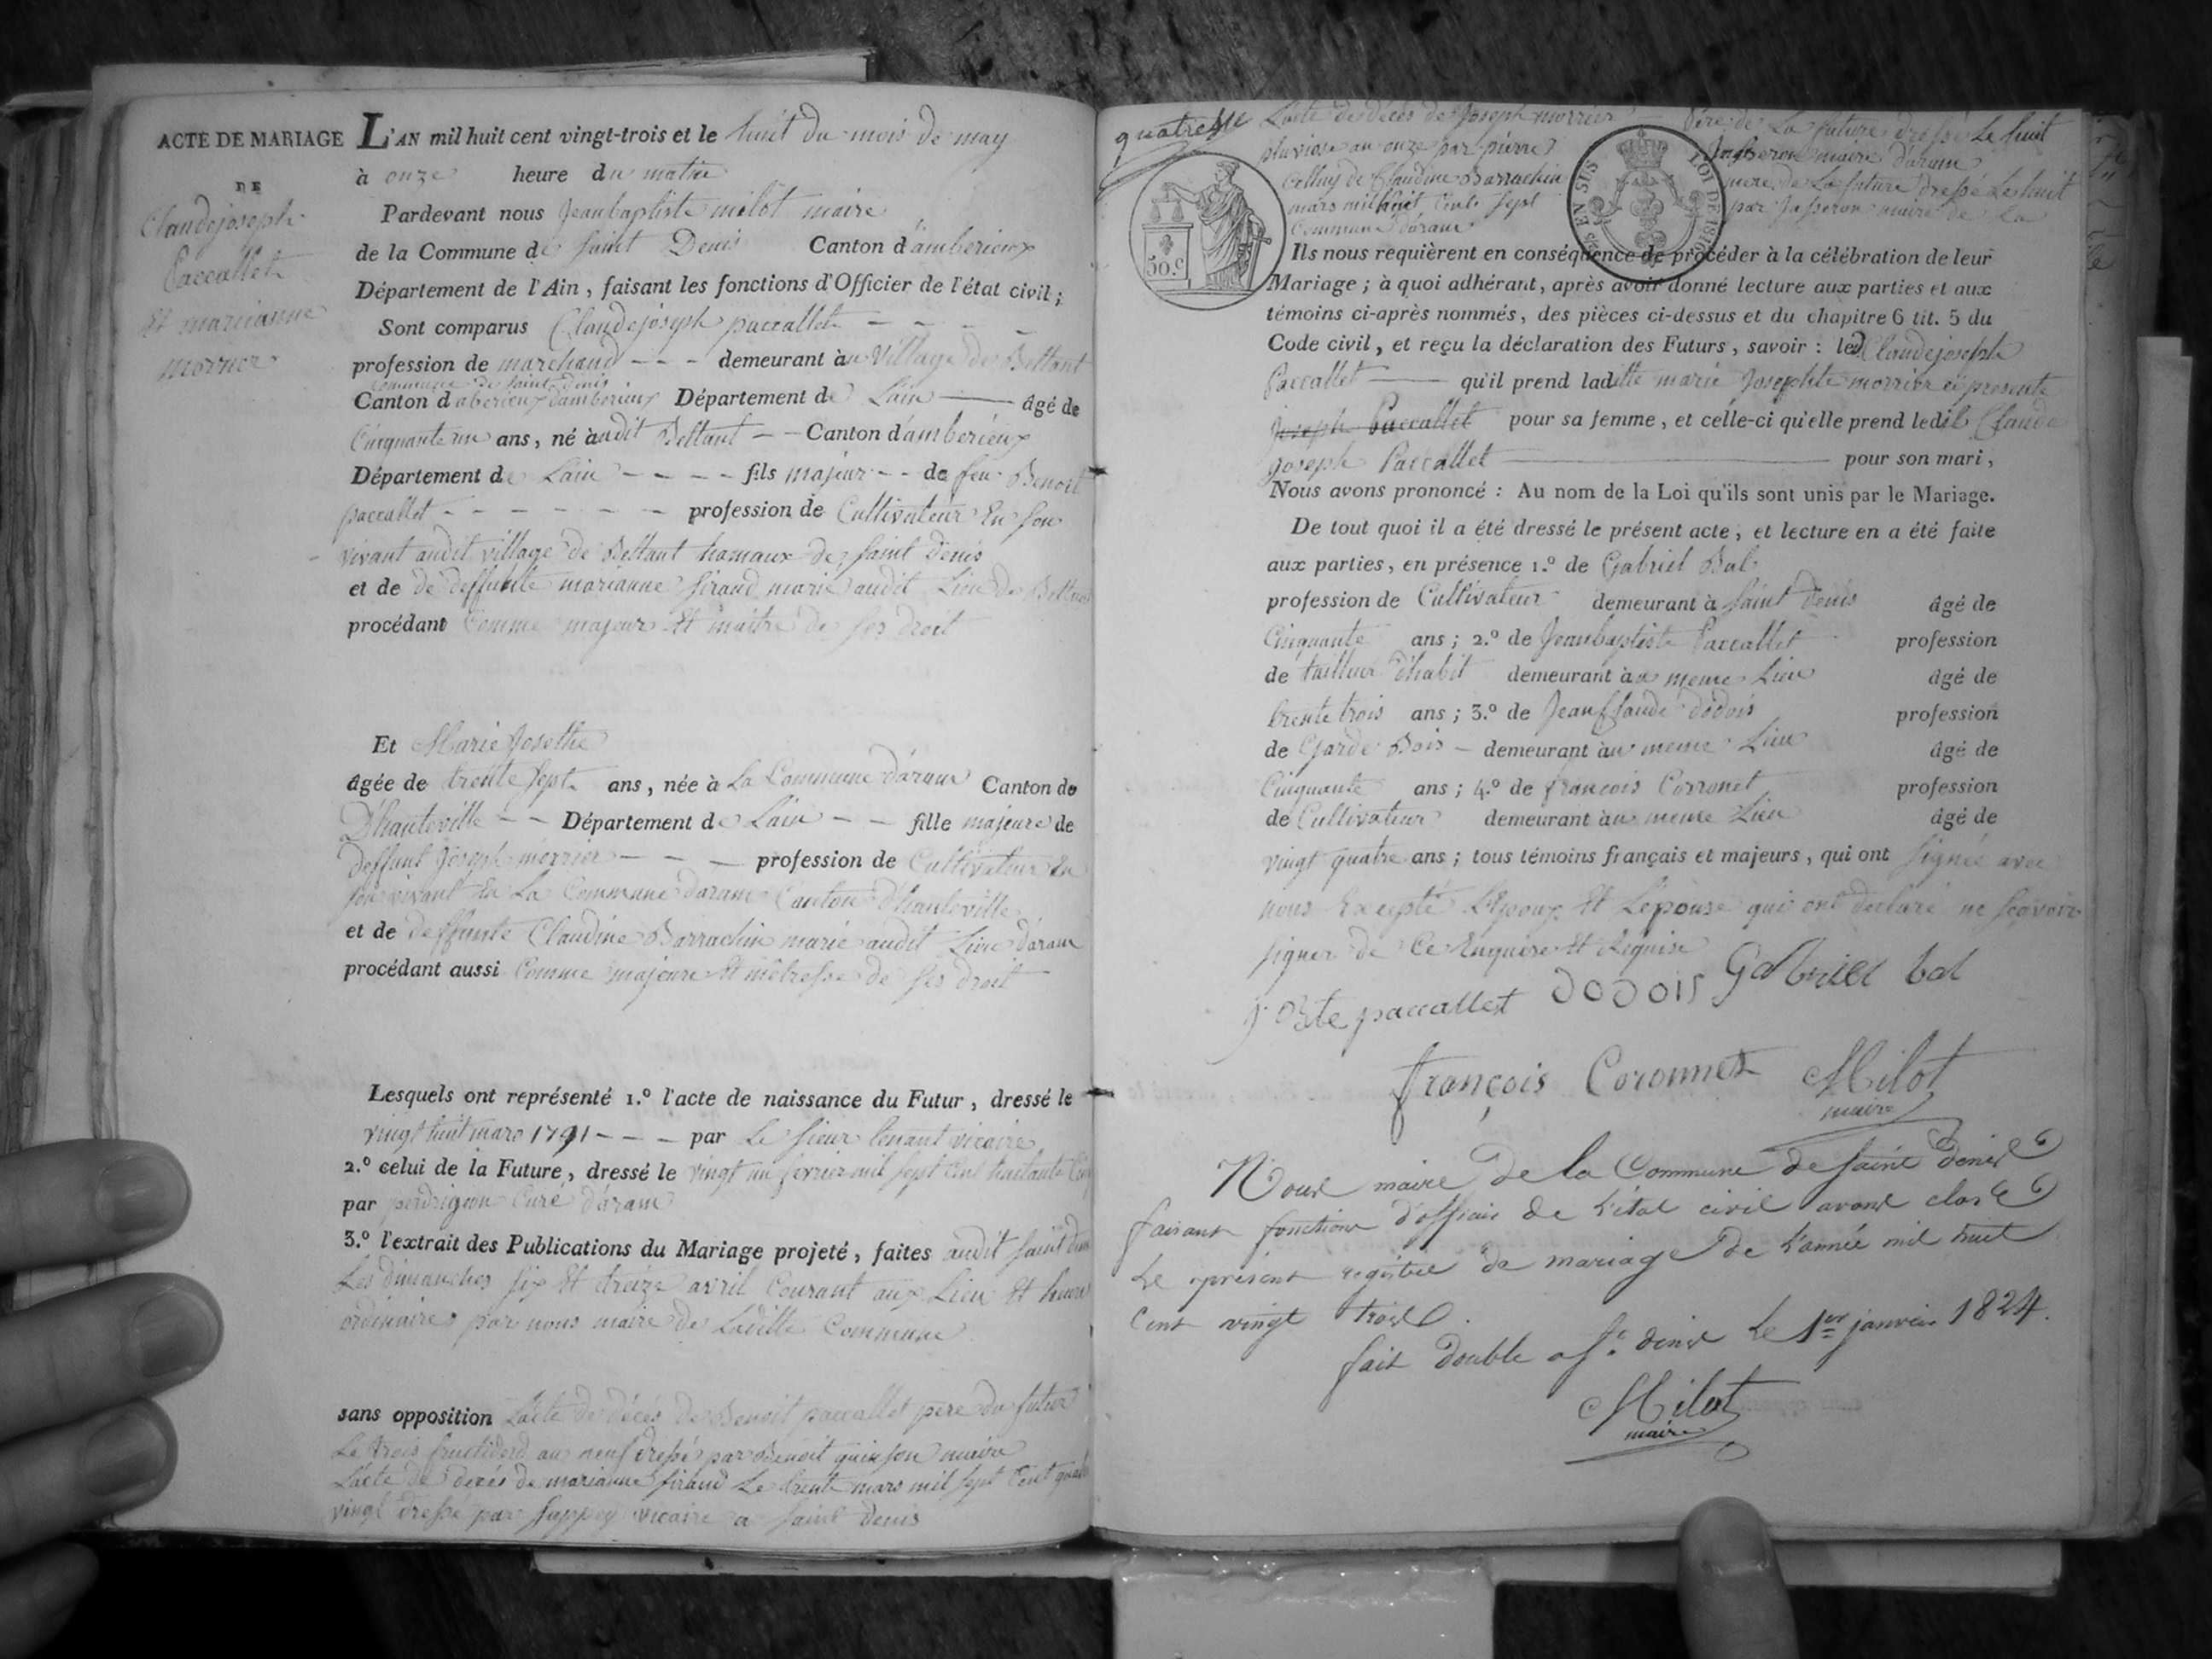 ACTE DE MARIAGE
DE
Claudejoseph
Paccallet
Et marieanne
morrier
L'AN mil huit cent vingt-trois et le huit du mois de may
à onze heure du matin
Pardevant nous Jeanbaptiste milot maire
de la Commune de Saint Denis Canton d'amberieux
Département de l'Ain, faisant les fonctions d'Officier de l'état civil;
Sont comparus Claudejoseph paccallet
profession de marchand - - - demeurant au Village de Bettant
Commune de Saint denis
Canton d'amberieux Département de Lain — âgé de
Cinquante un ans, né audit Bettant - - Canton d'amberieux
Département de Lain - - - - fils majeur - - de feu Benoit
paccallet - - - - - - profession de Cultivateur En son
vivant audit village de Bettant hamaux de Saint Denis
et de deffunte marianne Siraud marie audit Lieu de Bettant
procédant Comme majeur Et maitre de ses droit
Et Marie Josethe
âgée de trente sept ans, née à La Commune d'áranc Canton de
D'hauteville - - Département de Lain - - fille majeure de
Deffunt Joseph morrier - - - profession de Cultivateur En
son vivant En La Commune d'áranc Canton D'hauteville
et de deffunte Claudine Barrachin marie audit Lieu d'áranc
procédant aussi Comme majeure Et mêtresse de ses droit
Lesquels ont représenté 1.º l'acte de naissance du Futur, dressé le
vingt huit mars 1791 - - - par Le sieur vicaire
2.º celui de la Future, dressé le vingt un fevrier mil sept Cent huitante
par perdrigeon Curé d'áranc
3.º l'extrait des Publications du Mariage projeté, faites audit Saint denis
Les dimanches six Et treize avril Courant aux Lieu Et heure
ordinaires par nous maire de Laditte Commune
sans opposition L'acte de décés de Benoit paccallet pere du futur
Le trois fructidord an neuf dressé par Benoit quinson maire
L'acte de decés de marianne Siraud Le trente mars mil sept Cent quatre
vingt dressé par Suppey vicaire a Saint Denis
quatresse
L'acte de décés de Joseph morrier Pére de La future dressé Le huit
pluviose an onze par pierre Jasseron maire d'áranc
Celluy de Claudine Barrachin mere de La future dressé Le huit
mars mil huit Cent Sept par Jasseron maire de La
Commune d'áranc
50.c
EN SUS
LOI DE 1816
Ils nous requièrent en conséquence de procéder à la célébration de leur
Mariage; à quoi adhérant, après avoir donné lecture aux parties et aux
témoins ci-après nommés, des pièces ci-dessus et du chapitre 6 tit. 5 du
Code civil, et reçu la déclaration des Futurs, savoir: led Claudejoseph
Paccallet — qu'il prend laditte marie Josephte morrier ci presente
Joseph Paccallet pour sa femme, et celle-ci qu'elle prend ledit Claude
Joseph Paccallet — pour son mari,
Nous avons prononcé: Au nom de la Loi qu'ils sont unis par le Mariage.
De tout quoi il a été dressé le présent acte, et lecture en a été faite
aux parties, en présence 1.º de Gabriel Bal
profession de Cultivateur demeurant à Saint Denis âgé de
Cinquante ans; 2.º de Jeanbaptiste Paccallet profession
de tailleur d'habit demeurant au meme Lieu âgé de
trente trois ans; 3.º de JeanClaude dodois profession
de Garde Bois - demeurant au meme Lieu âgé de
Cinquante ans; 4.º de françois Corronet profession
de Cultivateur demeurant au meme Lieu âgé de
vingt quatre ans; tous témoins français et majeurs, qui ont signée avec
nous Excepté L'Epoux Et Lepouse qui ont declaré ne sçavoir
signer de Ce Enquere Et Requise
J. Bte paccallet DODOIS Gabriel bal
françois Coronnet Milot
maire
Nous maire de la Commune de Saint denis
faisant fonctions d'officier de l'état civil avons clos
le présent registre de mariage de l'année mil huit
cent vingt trois.
fait double a St. denis le 1er janvier 1824.
Milot
maire